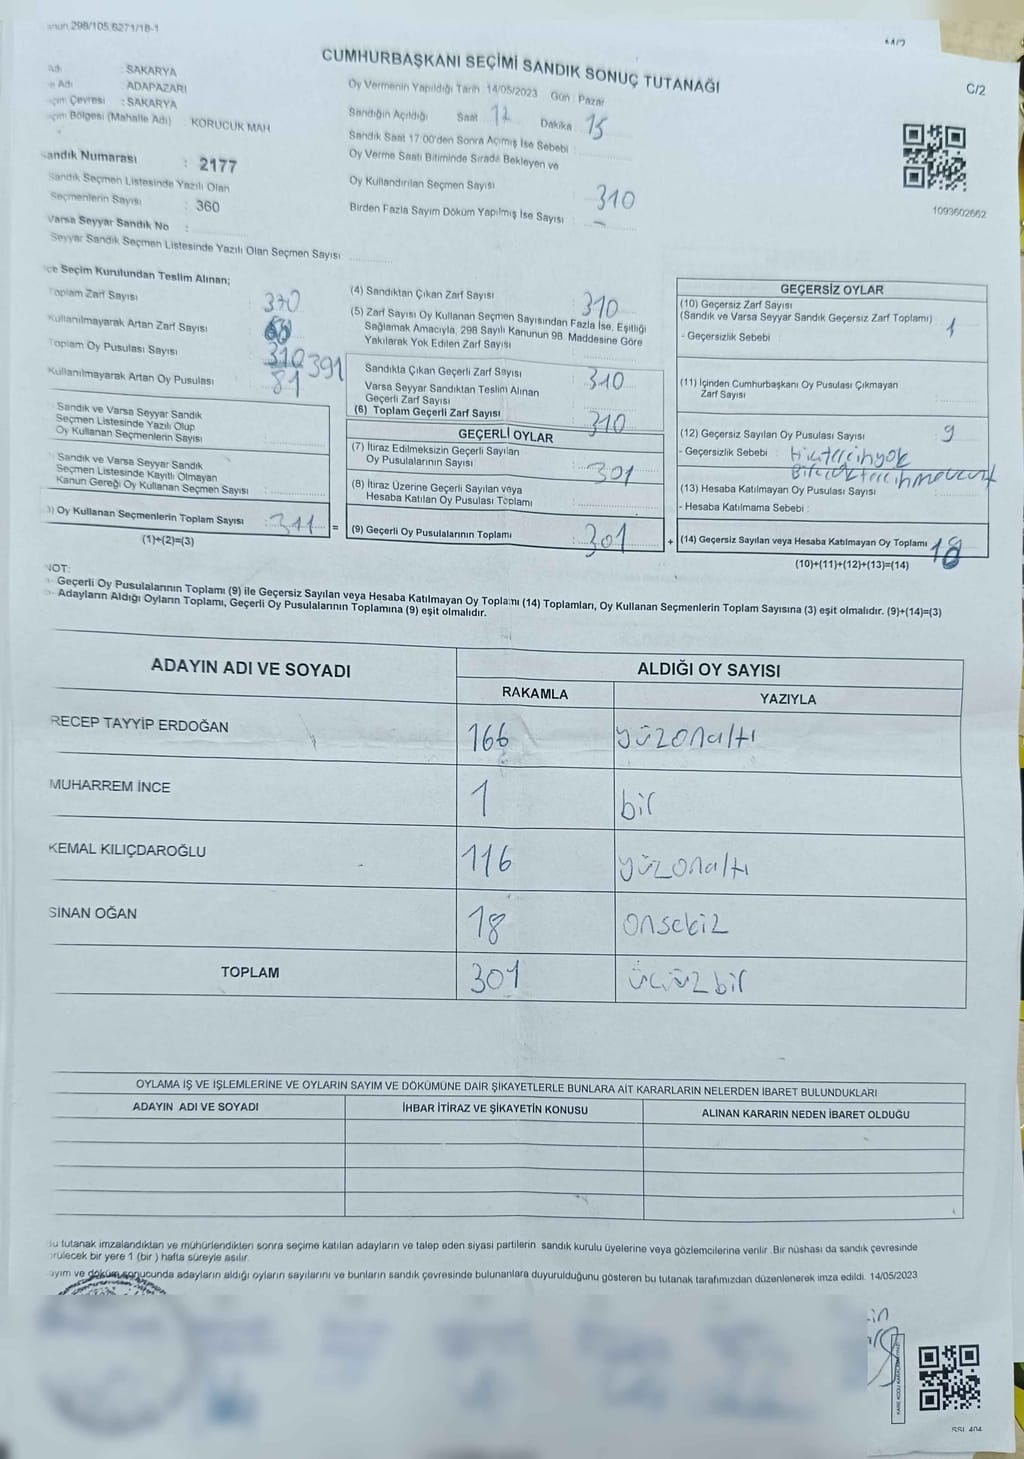 298/105.6271/18-1
CUMHURBAŞKANI SEÇİMİ SANDIK SONUÇ TUTANAĞI
C/2
: SAKARYA
: ADAPAZARI
: SAKARYA
(Mahalle Adı) : KORUCUK MAH
Oy Vermenin Yapıldığı Tarih 14/05/2023 Gün : Pazar
Sandığın Açıldığı Saat 17 Dakika : 15
Sandık Saat 17.00'den Sonra Açılmış İse Sebebi :
Oy Verme Saati Bitiminde Sırada Bekleyen ve
Oy Kullandırılan Seçmen Sayısı : 310
Birden Fazla Sayım Döküm Yapılmış İse Sayısı : -
1093602662
Sandık Numarası : 2177
Sandık Seçmen Listesinde Yazılı Olan
Seçmenlerin Sayısı : 360
Varsa Seyyar Sandık No :
Seyyar Sandık Seçmen Listesinde Yazılı Olan Seçmen Sayısı
Seçim Kurulundan Teslim Alınan;
Toplam Zarf Sayısı 370
Kullanılmayarak Artan Zarf Sayısı
Toplam Oy Pusulası Sayısı 310 391
Kullanılmayarak Artan Oy Pusulası 81
Sandık ve Varsa Seyyar Sandık
Seçmen Listesinde Yazılı Olup
Oy Kullanan Seçmenlerin Sayısı :
Sandık ve Varsa Seyyar Sandık
Seçmen Listesinde Kayıtlı Olmayan
Kanun Gereği Oy Kullanan Seçmen Sayısı :
Oy Kullanan Seçmenlerin Toplam Sayısı : 311 =
(1)+(2)=(3)
(4) Sandıktan Çıkan Zarf Sayısı : 310
(5) Zarf Sayısı Oy Kullanan Seçmen Sayısından Fazla İse, Eşitliği
Sağlamak Amacıyla, 298 Sayılı Kanunun 98. Maddesine Göre
Yakılarak Yok Edilen Zarf Sayısı
Sandıkta Çıkan Geçerli Zarf Sayısı : 310
Varsa Seyyar Sandıktan Teslim Alınan
Geçerli Zarf Sayısı
(6) Toplam Geçerli Zarf Sayısı : 310
GEÇERLİ OYLAR
(7) İtiraz Edilmeksizin Geçerli Sayılan
Oy Pusulalarının Sayısı : 301
(8) İtiraz Üzerine Geçerli Sayılan veya
Hesaba Katılan Oy Pusulası Toplamı :
(9) Geçerli Oy Pusulalarının Toplamı : 301 +
GEÇERSİZ OYLAR
(10) Geçersiz Zarf Sayısı
(Sandık ve Varsa Seyyar Sandık Geçersiz Zarf Toplamı) 1
- Geçersizlik Sebebi :
(11) İçinden Cumhurbaşkanı Oy Pusulası Çıkmayan
Zarf Sayısı
(12) Geçersiz Sayılan Oy Pusulası Sayısı : 9
- Geçersizlik Sebebi :
(13) Hesaba Katılmayan Oy Pusulası Sayısı :
- Hesaba Katılmama Sebebi :
(14) Geçersiz Sayılan veya Hesaba Katılmayan Oy Toplamı
(10)+(11)+(12)+(13)=(14)
NOT:
Geçerli Oy Pusulalarının Toplamı (9) ile Geçersiz Sayılan veya Hesaba Katılmayan Oy Toplamı (14) Toplamları, Oy Kullanan Seçmenlerin Toplam Sayısına (3) eşit olmalıdır. (9)+(14)=(3)
Adayların Aldığı Oyların Toplamı, Geçerli Oy Pusulalarının Toplamına (9) eşit olmalıdır.
ADAYIN ADI VE SOYADI
ALDIĞI OY SAYISI
RAKAMLA YAZIYLA
RECEP TAYYİP ERDOĞAN 166 yüzonaltı
MUHARREM İNCE 1 bir
KEMAL KILIÇDAROĞLU 116 yüzonaltı
SİNAN OĞAN 18 onsekiz
TOPLAM 301 üçyüzbir
OYLAMA İŞ VE İŞLEMLERİNE VE OYLARIN SAYIM VE DÖKÜMÜNE DAİR ŞİKAYETLERLE BUNLARA AİT KARARLARIN NELERDEN İBARET BULUNDUKLARI
ADAYIN ADI VE SOYADI İHBAR İTİRAZ VE ŞİKAYETİN KONUSU ALINAN KARARIN NEDEN İBARET OLDUĞU
tutanak imzalandıktan ve mühürlendikten sonra seçime katılan adayların ve talep eden siyasi partilerin sandık kurulu üyelerine veya gözlemcilerine verilir. Bir nüshası da sandık çevresinde
bir yere 1 (bir) hafta süreyle asılır.
ve döküm sonucunda adayların aldığı oyların sayılarını ve bunların sandık çevresinde bulunanlara duyurulduğunu gösteren bu tutanak tarafımızdan düzenlenerek imza edildi. 14/05/2023